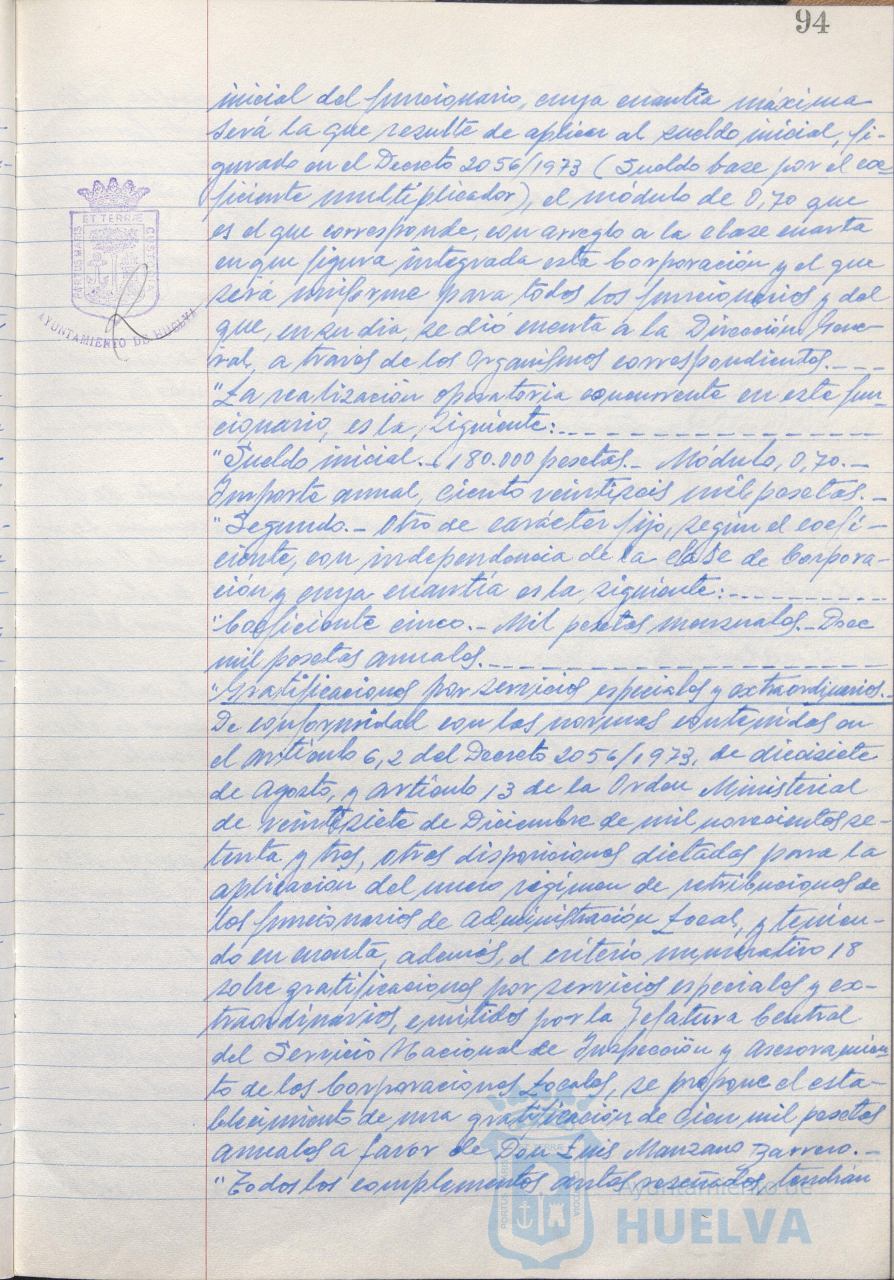 94
inicial del funcionario, cuya cuantía máxima
será la que resulte de aplicar al sueldo inicial, fi-
gurado en el Decreto 2056/1973 (Sueldo base por el coe-
ficiente multiplicador), el módulo de 0,70 que
es el que corresponde, con arreglo a la clase cuarta
en que figura integrada esta Corporación y el que
será uniforme para todos los funcionarios y del
que, en su dia, se dió cuenta a la Dirección Gene-
ral, a través de los Organismos correspondientes.----
"La realización operatoria concurrente en este fun-
cionario, es la siguiente:----------------
"Sueldo inicial.- 180.000 pesetas.- Módulo, 0,70.-
Importe anual, ciento veintiseis mil pesetas.-
"Segundo.- Otro de carácter fijo, según el coefi-
ciente, con independencia de la clase de Corpora-
ción y cuya cuantía es la siguiente:----------
"Coeficiente cinco.- Mil pesetas mensuales.- Doce
mil pesetas anuales.--------------------
"Gratificaciones por servicios especiales y extraordinarios.-
De conformidad con las normas contenidas en
el artículo 6,2 del Decreto 2056/1973, de diecisiete
de Agosto, y artículo 13 de la Orden Ministerial
de veintisiete de Diciembre de mil novecientos se-
tenta y tres, otras disposiciones dictadas para la
aplicación del nuevo régimen de retribuciones de
los funcionarios de Administración Local, y tenien-
do en cuenta, además, el criterio numerativo 18
sobre gratificaciones por servicios especiales y ex-
traordinarios, emitidos por la Jefatura Central
del Servicio Nacional de Inspección y Asesoramien-
to de las Corporaciones Locales, se propone el esta-
blecimiento de una gratificación de Cien mil pesetas
anuales a favor de Don Luis Manzano Barrero.-
"Todos los complementos antes reseñados, tendrán
ET TERRÆ
PORTUS MARIS
CUSTODIA
AYUNTAMIENTO DE HUELVA
Ayuntamiento de
HUELVA